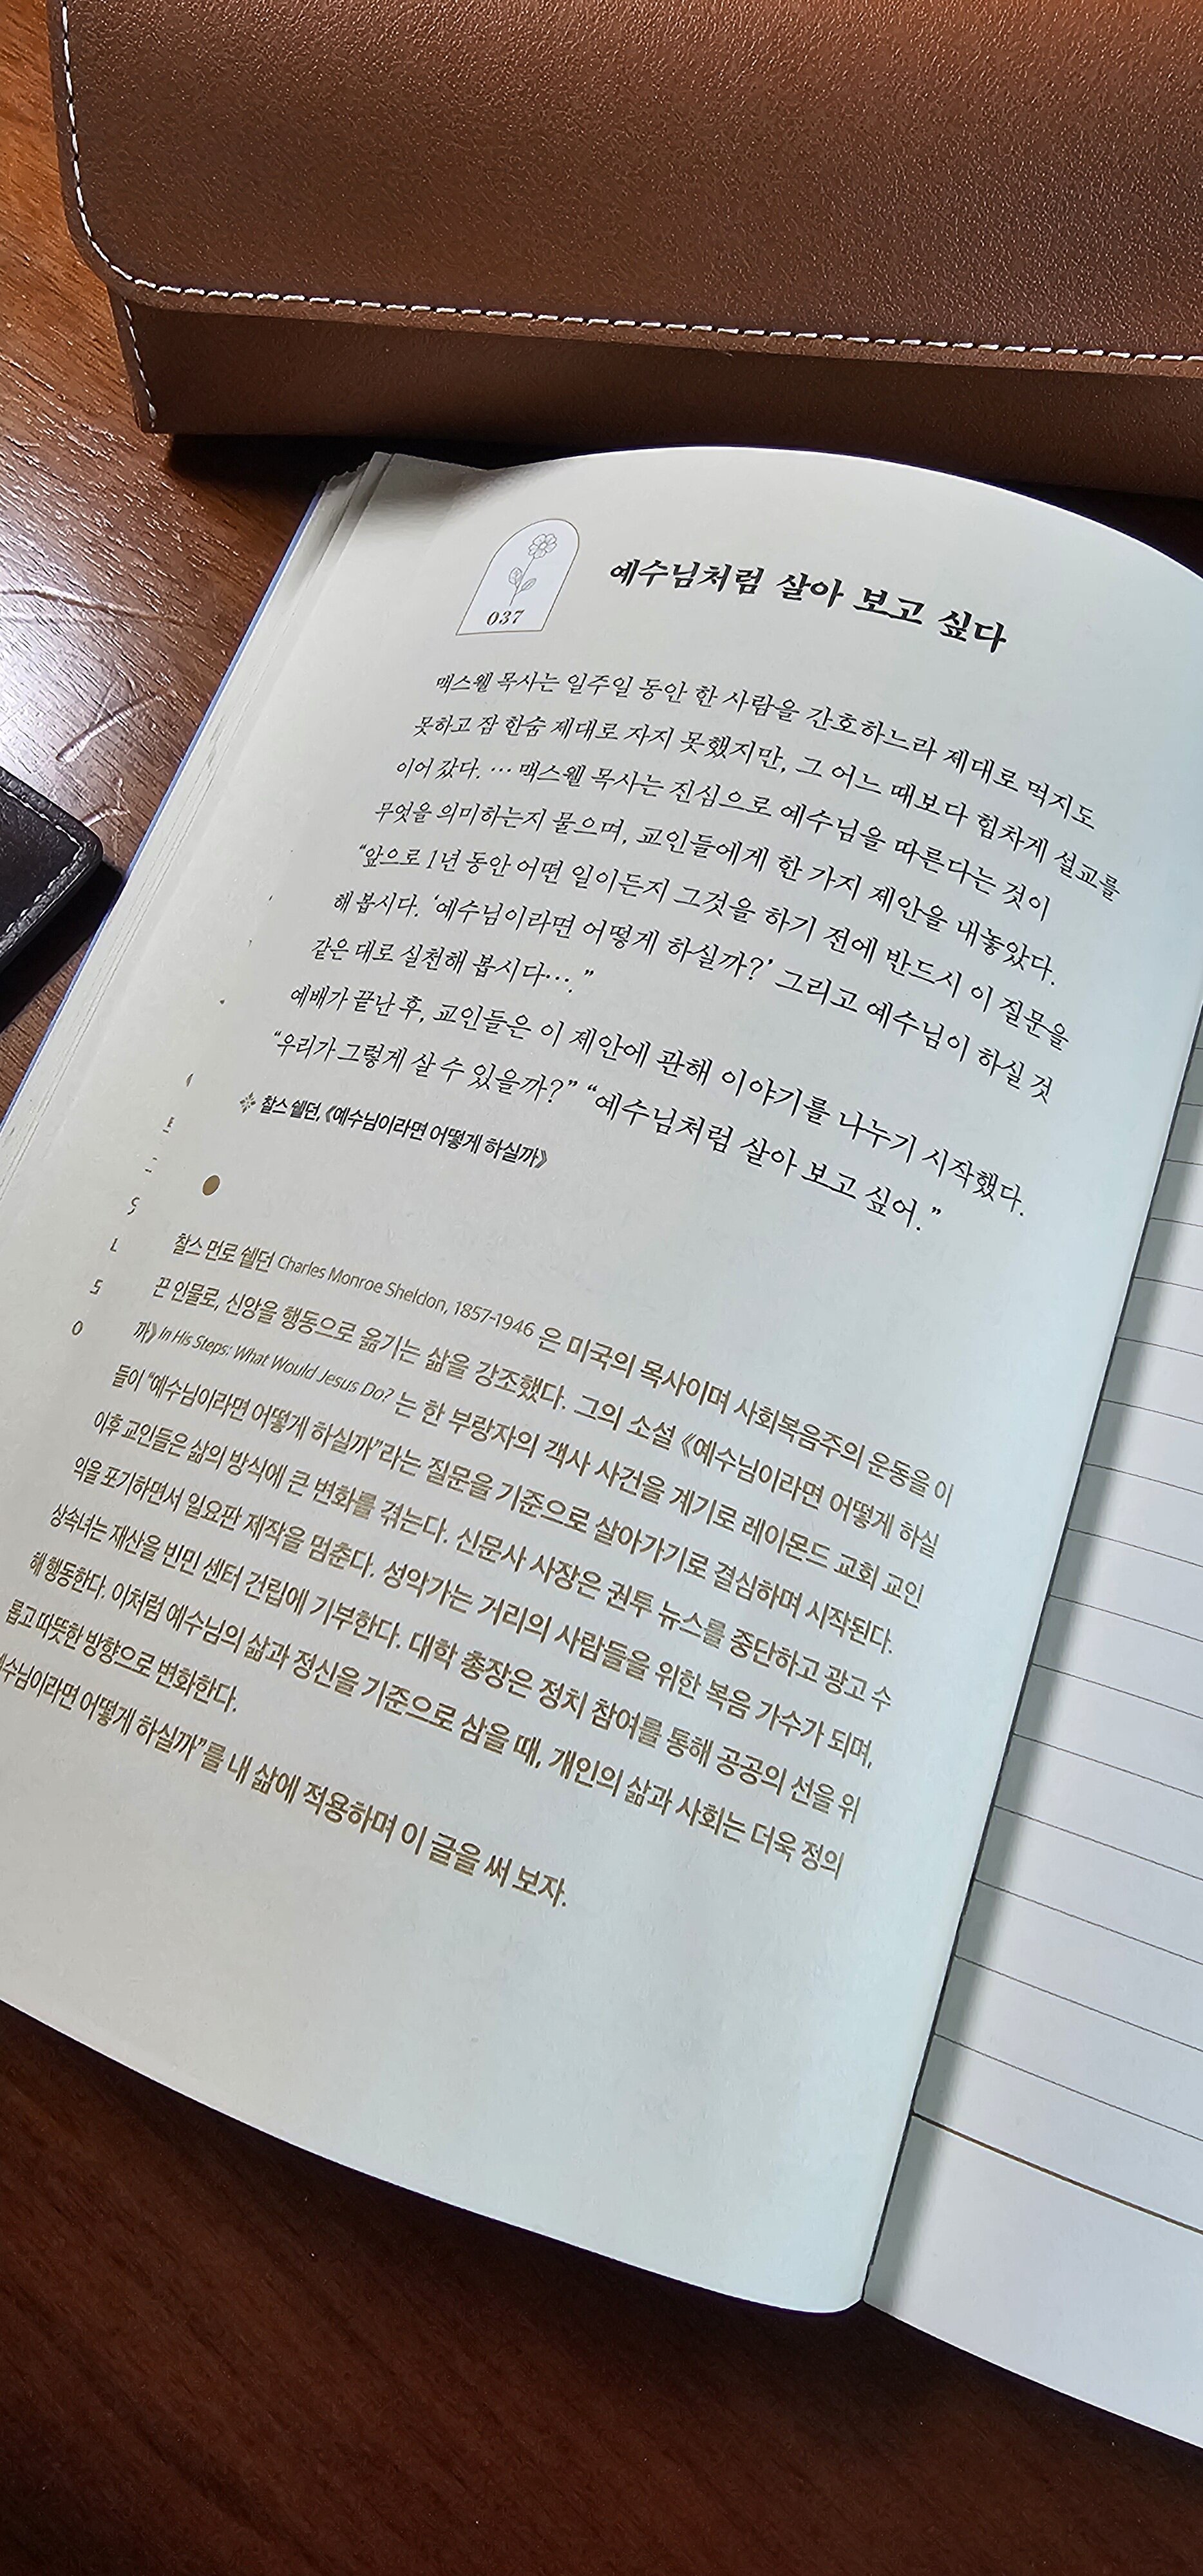 037
예수님처럼 살아 보고 싶다
맥스웰 목사는 일주일 동안 한 사람을 간호하느라 제대로 먹지도
못하고 잠 한숨 제대로 자지 못했지만, 그 어느 때보다 힘차게 설교를
이어 갔다. … 맥스웰 목사는 진심으로 예수님을 따른다는 것이
무엇을 의미하는지 물으며, 교인들에게 한 가지 제안을 내놓았다.
“앞으로 1년 동안 어떤 일이든지 그것을 하기 전에 반드시 이 질문을
해 봅시다. ‘예수님이라면 어떻게 하실까?’ 그리고 예수님이 하실 것
같은 대로 실천해 봅시다….”
예배가 끝난 후, 교인들은 이 제안에 관해 이야기를 나누기 시작했다.
“우리가 그렇게 살 수 있을까?” “예수님처럼 살아 보고 싶어.”
찰스 쉘던, 《예수님이라면 어떻게 하실까》
찰스 먼로 쉘던 Charles Monroe Sheldon, 1857-1946 은 미국의 목사이며 사회복음주의 운동을 이
끈 인물로, 신앙을 행동으로 옮기는 삶을 강조했다. 그의 소설 《예수님이라면 어떻게 하실
까》 In His Steps: What Would Jesus Do? 는 한 부랑자의 객사 사건을 계기로 레이몬드 교회 교인
들이 “예수님이라면 어떻게 하실까”라는 질문을 기준으로 살아가기로 결심하며 시작된다.
이후 교인들은 삶의 방식에 큰 변화를 겪는다. 신문사 사장은 권투 뉴스를 중단하고 광고 수
익을 포기하면서 일요판 제작을 멈춘다. 성악가는 거리의 사람들을 위한 복음 가수가 되며,
상속녀는 재산을 빈민 센터 건립에 기부한다. 대학 총장은 정치 참여를 통해 공공의 선을 위
해 행동한다. 이처럼 예수님의 삶과 정신을 기준으로 삼을 때, 개인의 삶과 사회는 더욱 정의
롭고 따뜻한 방향으로 변화한다.
예수님이라면 어떻게 하실까”를 내 삶에 적용하며 이 글을 써 보자.